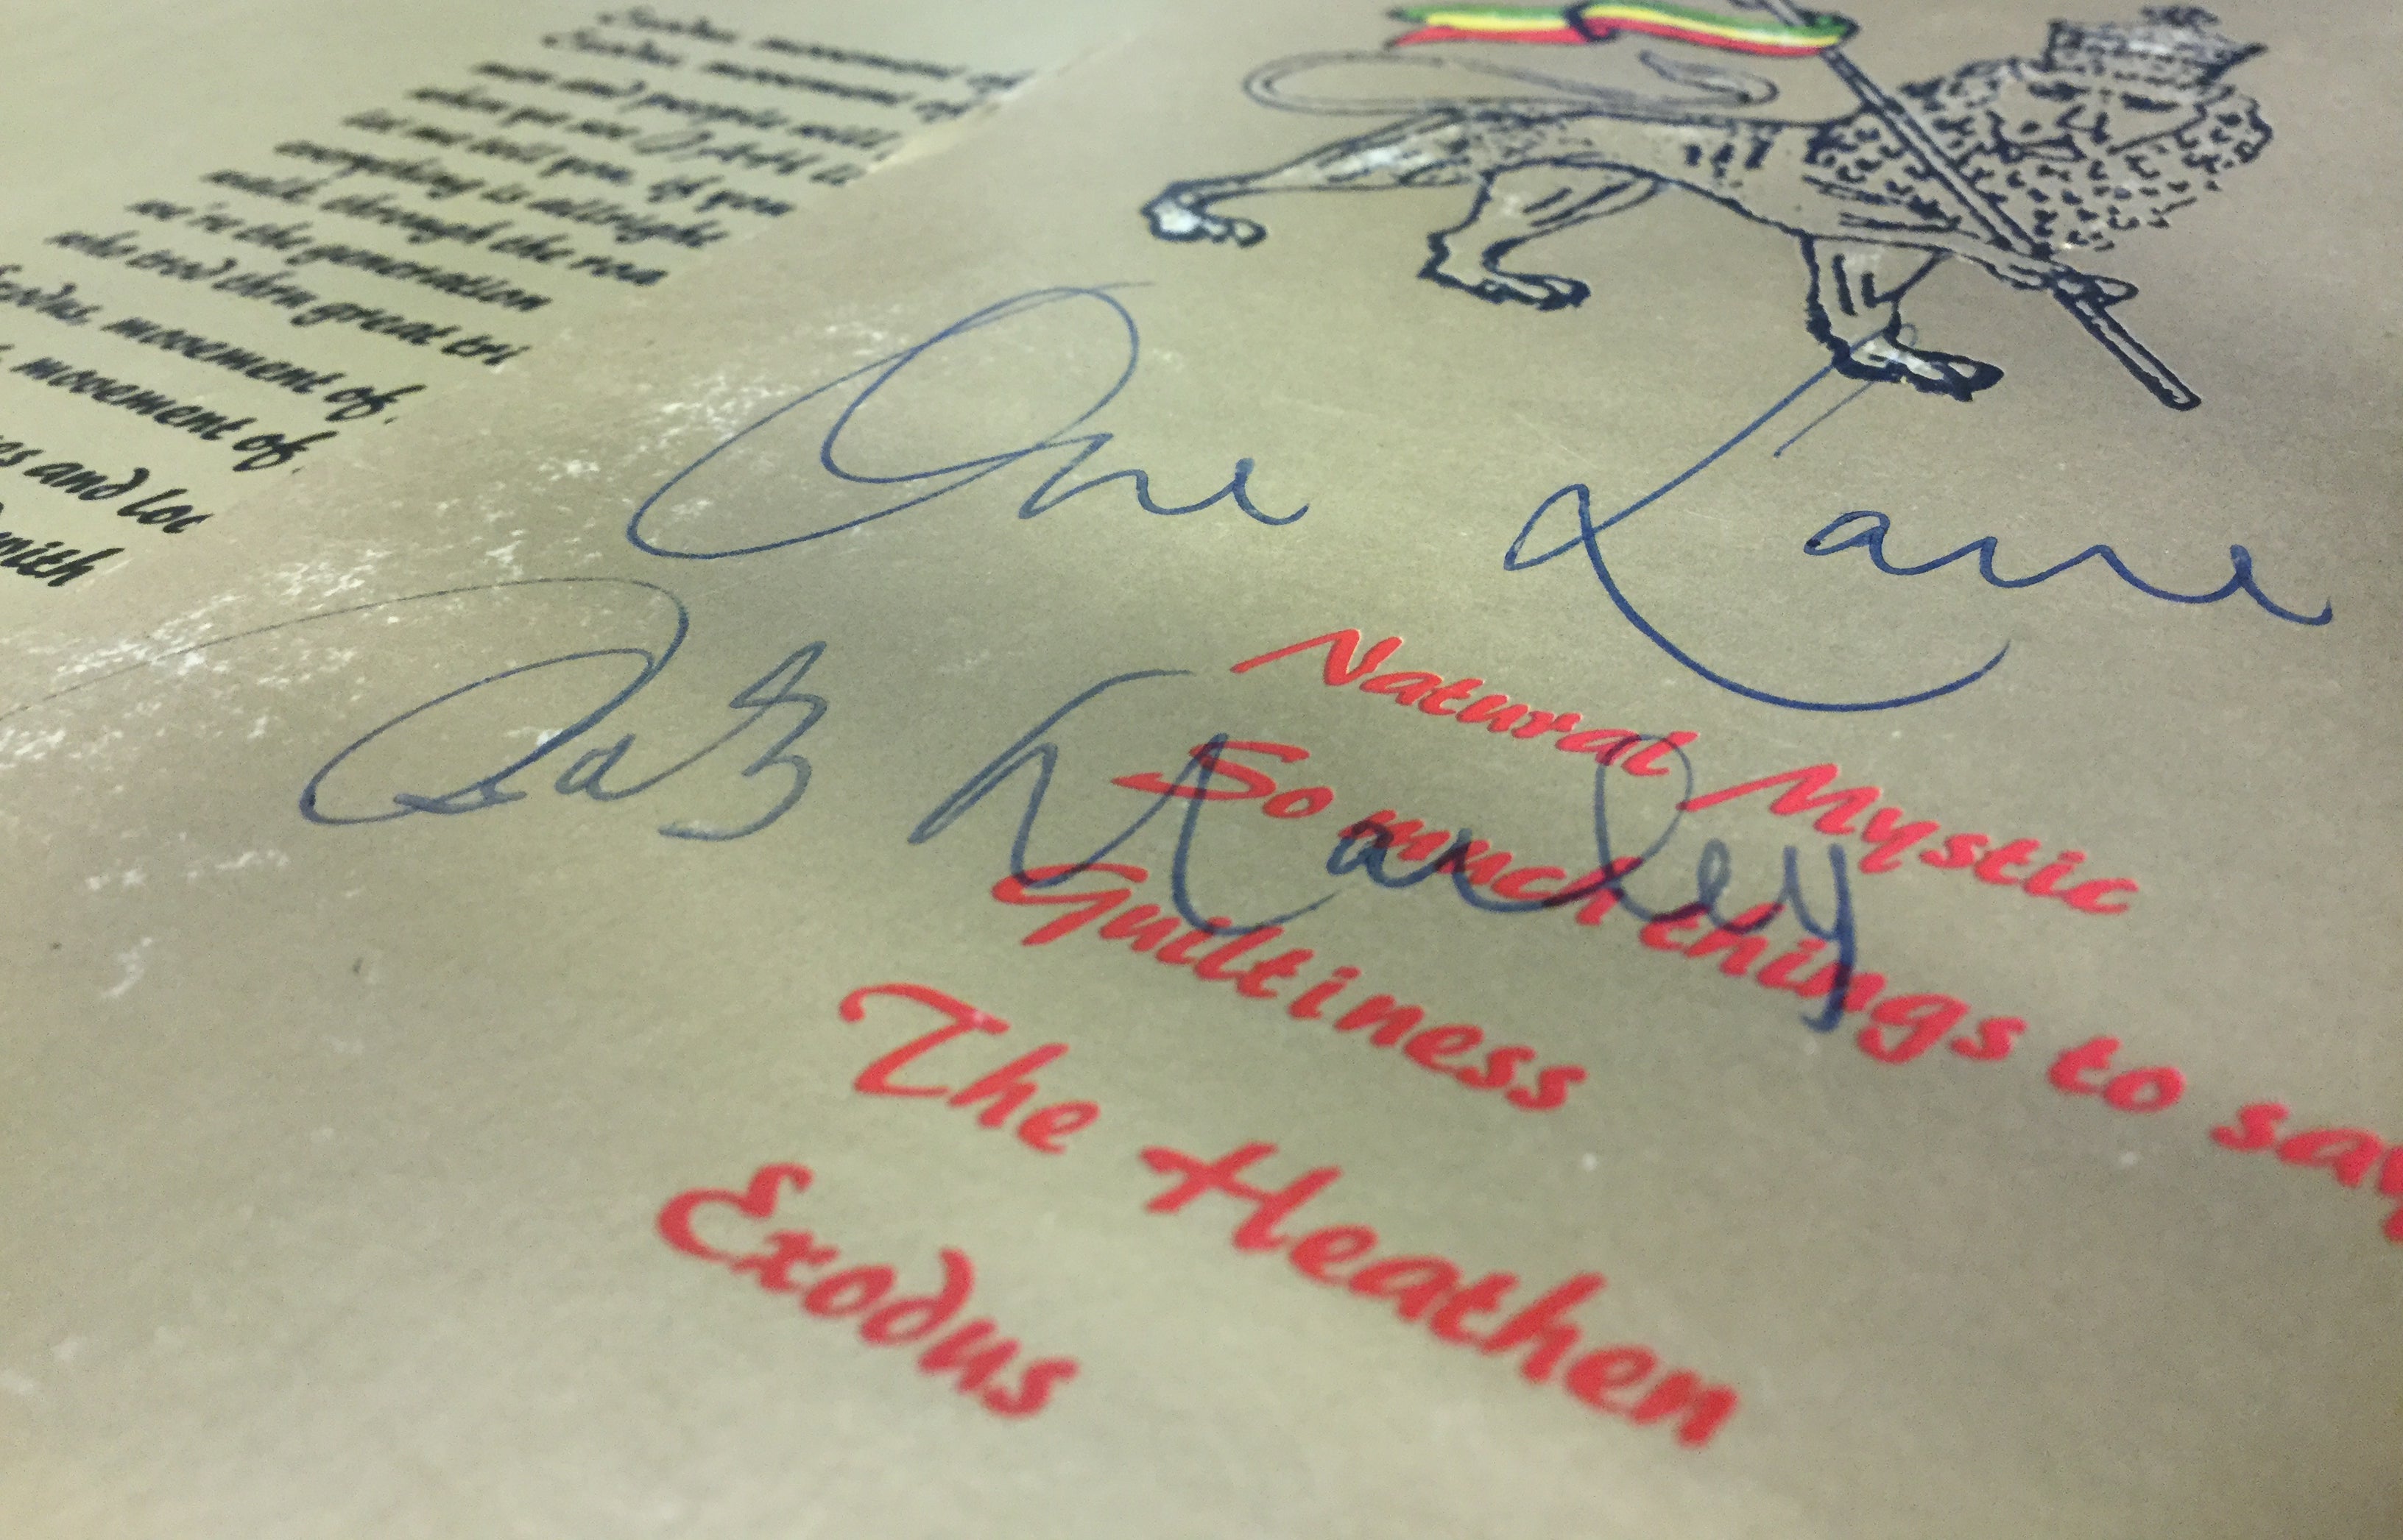 Exodus, movement of
Exodus, movement of
men and people will
when ya see Light
let me tell you if you
everything is allright
walk, through the roa
we're the generation
who trod thru great tri
Exodus, movement of,
movement of,
es and loc
mith
One Love
Bob Marley
Natural Mystic
So much things to say
Guiltiness
The Heathen
Exodus